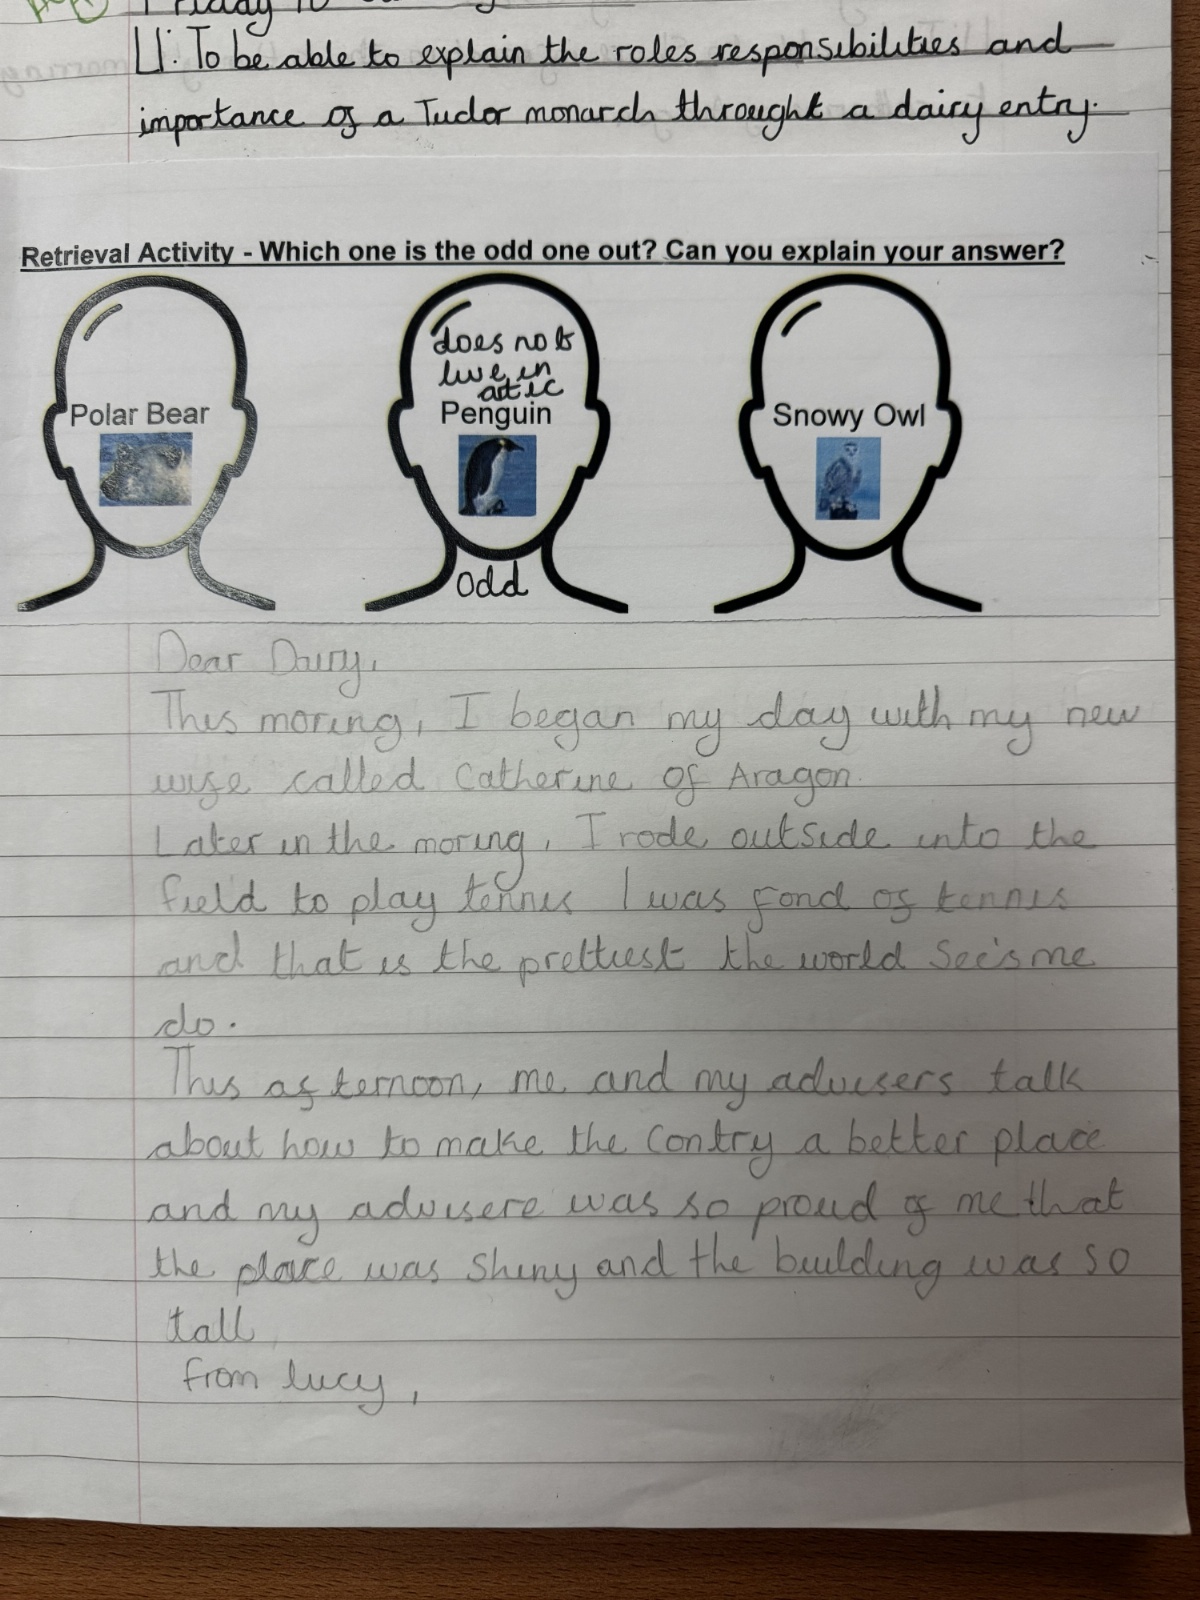 Friday 10
LI: To be able to explain the roles responsibilities and
importance of a Tudor monarch throught a dairy entry.
Retrieval Activity - Which one is the odd one out? Can you explain your answer?
does not
live in
artic
Polar Bear
Penguin
Snowy Owl
Odd
Dear Dairy,
This moring, I began my day with my new
wife called Catherine of Aragon.
Later in the moring, I rode outside into the
field to play tennis I was fond of tennis
and that is the prettiest the world See's me
do.
This afternoon, me and my advisers talk
about how to make the Contry a better place
and my advisere was so proud of me that
the place was Shiny and the building was so
tall
from lucy,